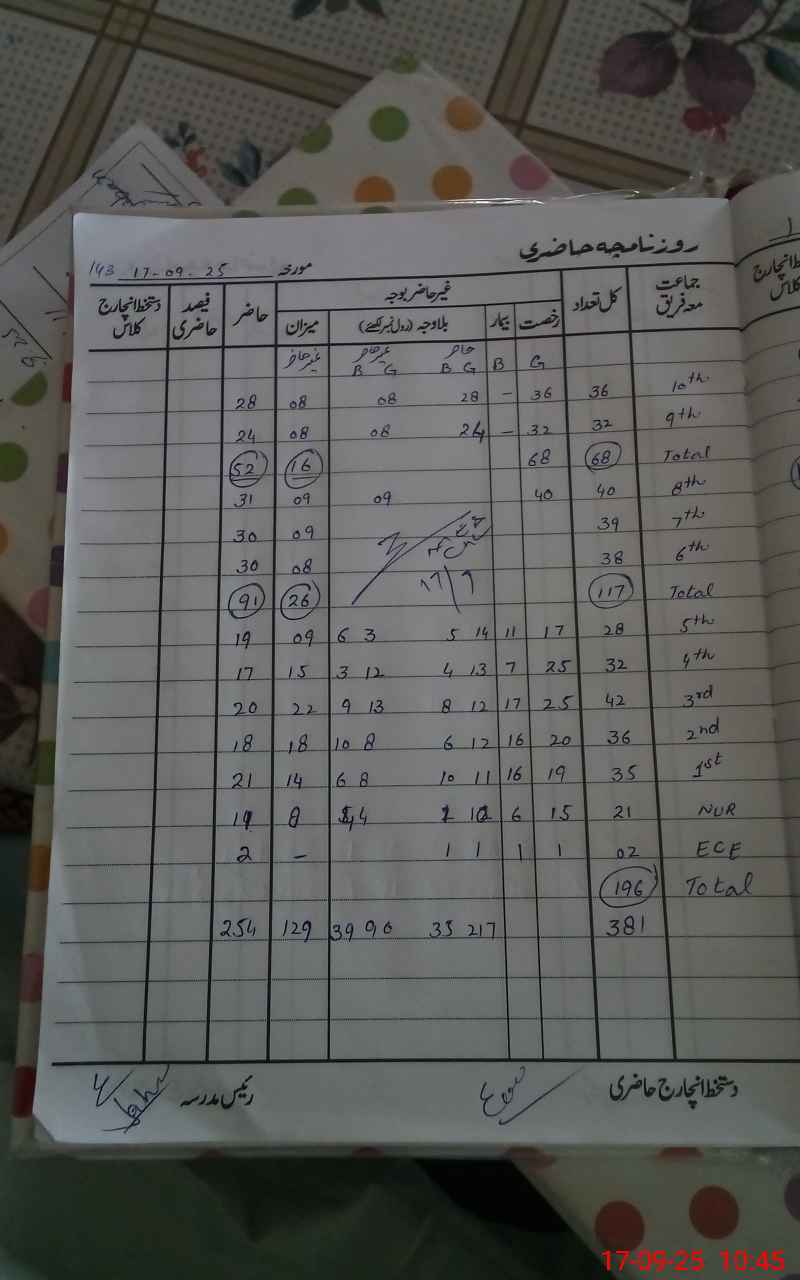 روزنامچہ حاضری
مورخہ 17-09-25 143
جماعت معہ فریق | کل تعداد | غیر حاضر بوجہ | حاضر | فیصد حاضری | دستخط انچارج کلاس
رخصت | بیمار | بلاوجہ (رول نمبر لکھئے) | میزان
G | B | حاضر B G | غیرحاضر B G | غیرحاضر
10th 36 36 – 28 08 08 28
9th 32 32 – 24 08 08 24
Total 68 68 16 52
8th 40 40 09 09 31
7th 39 09 30
6th 38 08 30
Total 117 26 91
5th 28 17 11 5 14 6 3 09 19
4th 32 25 7 4 13 3 12 15 17
3rd 42 25 17 8 12 9 13 22 20
2nd 36 20 16 6 12 10 8 18 18
1st 35 19 16 10 11 6 8 14 21
NUR 21 15 6 4 8
ECE 02 1 1 1 1 – 2
Total 196
381 35 217 39 90 129 254
دستخط انچارج حاضری
رئیس مدرسہ
17-09-25 10:45